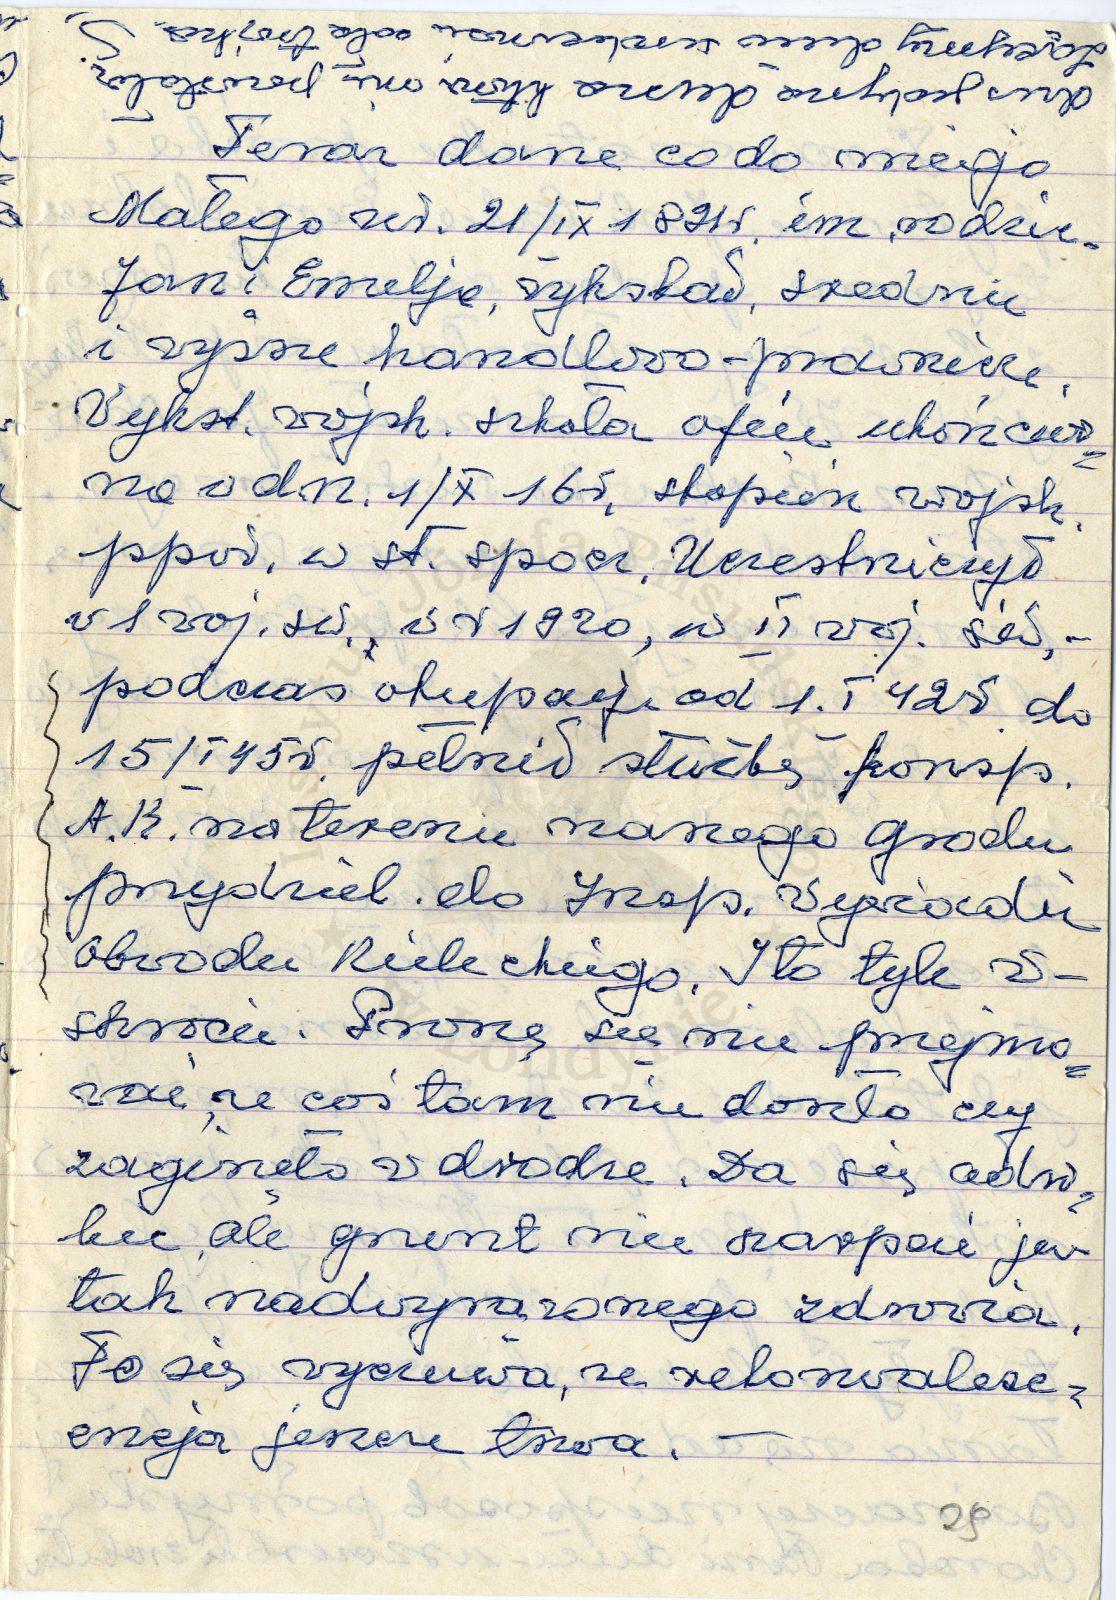 dusz jedyna

Teraz dane co do niego
Małego ur. 21/IX 1892r. im. rodzic.
Jan i Emelje, wykształ. srednie
i wyższe handlowo-prawnicze.
Wykszt. wojsk. szkoła ofic. ukończo=
na w dn. 1/X 16r, stopień wojsk.
ppor. w st. spocz. Uczestniczył
w I woj. św., w r 1920, w II woj. św,-
podczas okupacji od 1.I 42r do
15/I 45r. pełnił służbę konsp.
A.K. na terenie naszego Grodu
przydziel. do Insp. Wywiadu
Obwodu Kieleckiego. I to tyle w-
skrócie. Proszę się nie przejmo=
wać, że coś tam nie doszło czy
zaginęło w drodze. Da się odro=
bić, ale grunt nie szarpać już
tak nadwyrażonego zdrowia.
To się wyczuwa, że rekonwalesc=
encja jeszcze trwa. —
29
Instytut Józefa Piłsudskiego
w Londynie